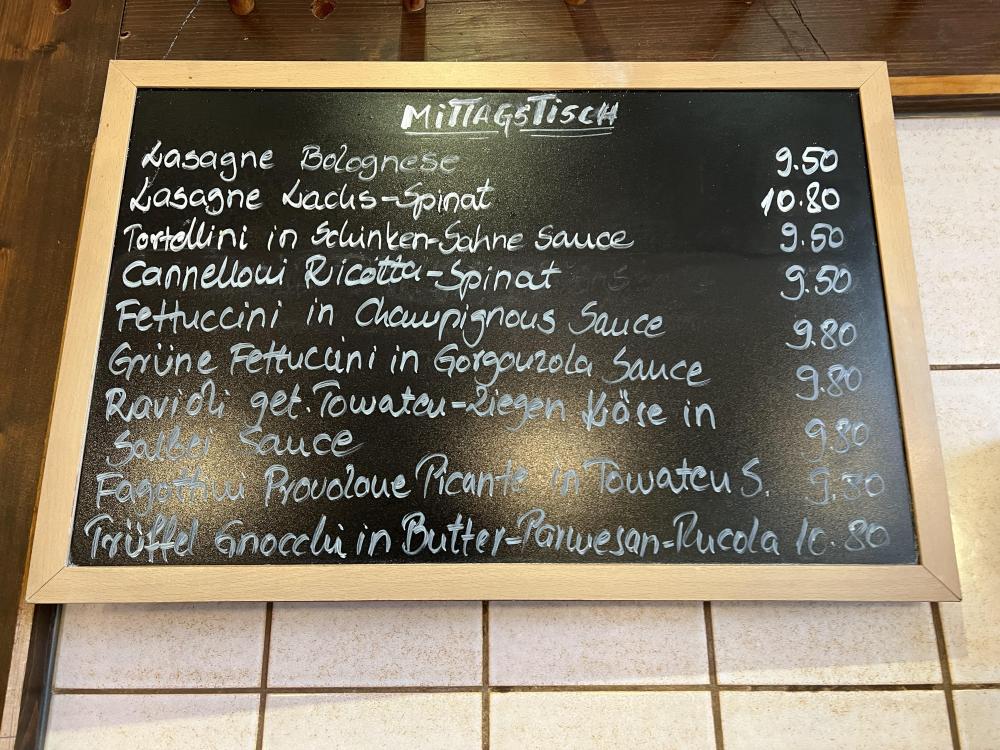 MITTAGSTISCH
Lasagne Bolognese 9.50
Lasagne Lachs-Spinat 10.80
Tortellini in Schinken-Sahne Sauce 9.50
Cannelloni Ricotta-Spinat 9.50
Fettuccini in Champignons Sauce 9.80
Grüne Fettuccini in Gorgonzola Sauce 9.80
Ravioli get. Tomaten-Ziegen Käse in
Salbei Sauce 9.80
Fagottini Provolone Picante in Tomaten S. 9.80
Trüffel Gnocchi in Butter-Parmesan-Rucola 10.80